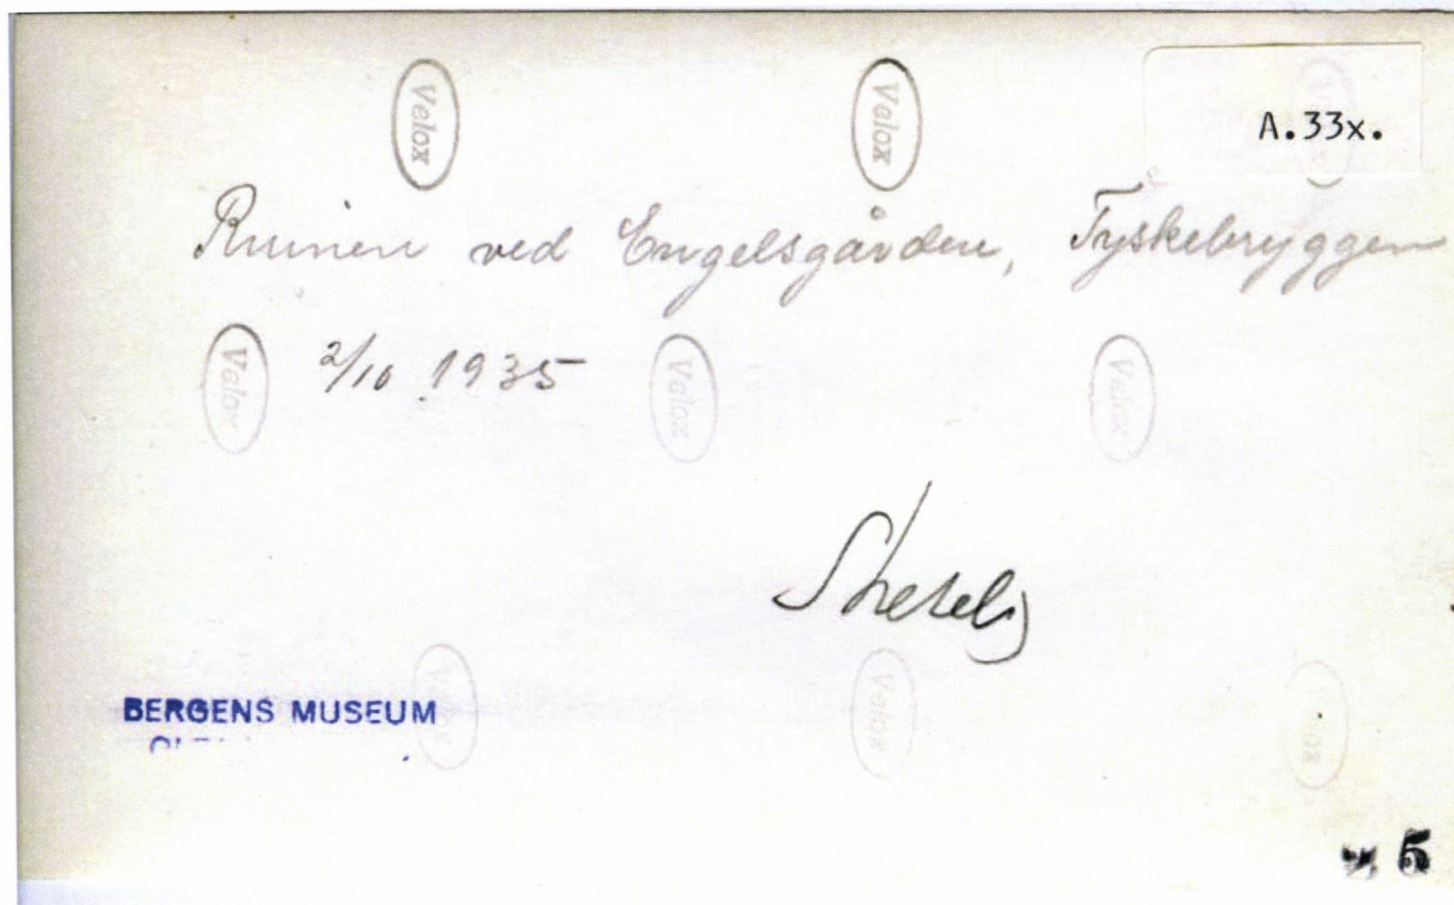 Velox Velox
A.33x.
Ruinen ved Engelsgården, Tyskebryggen
Velox 2/10 1935 Velox Velox
Shetelig
BERGENS MUSEUM
Velox Velox
5